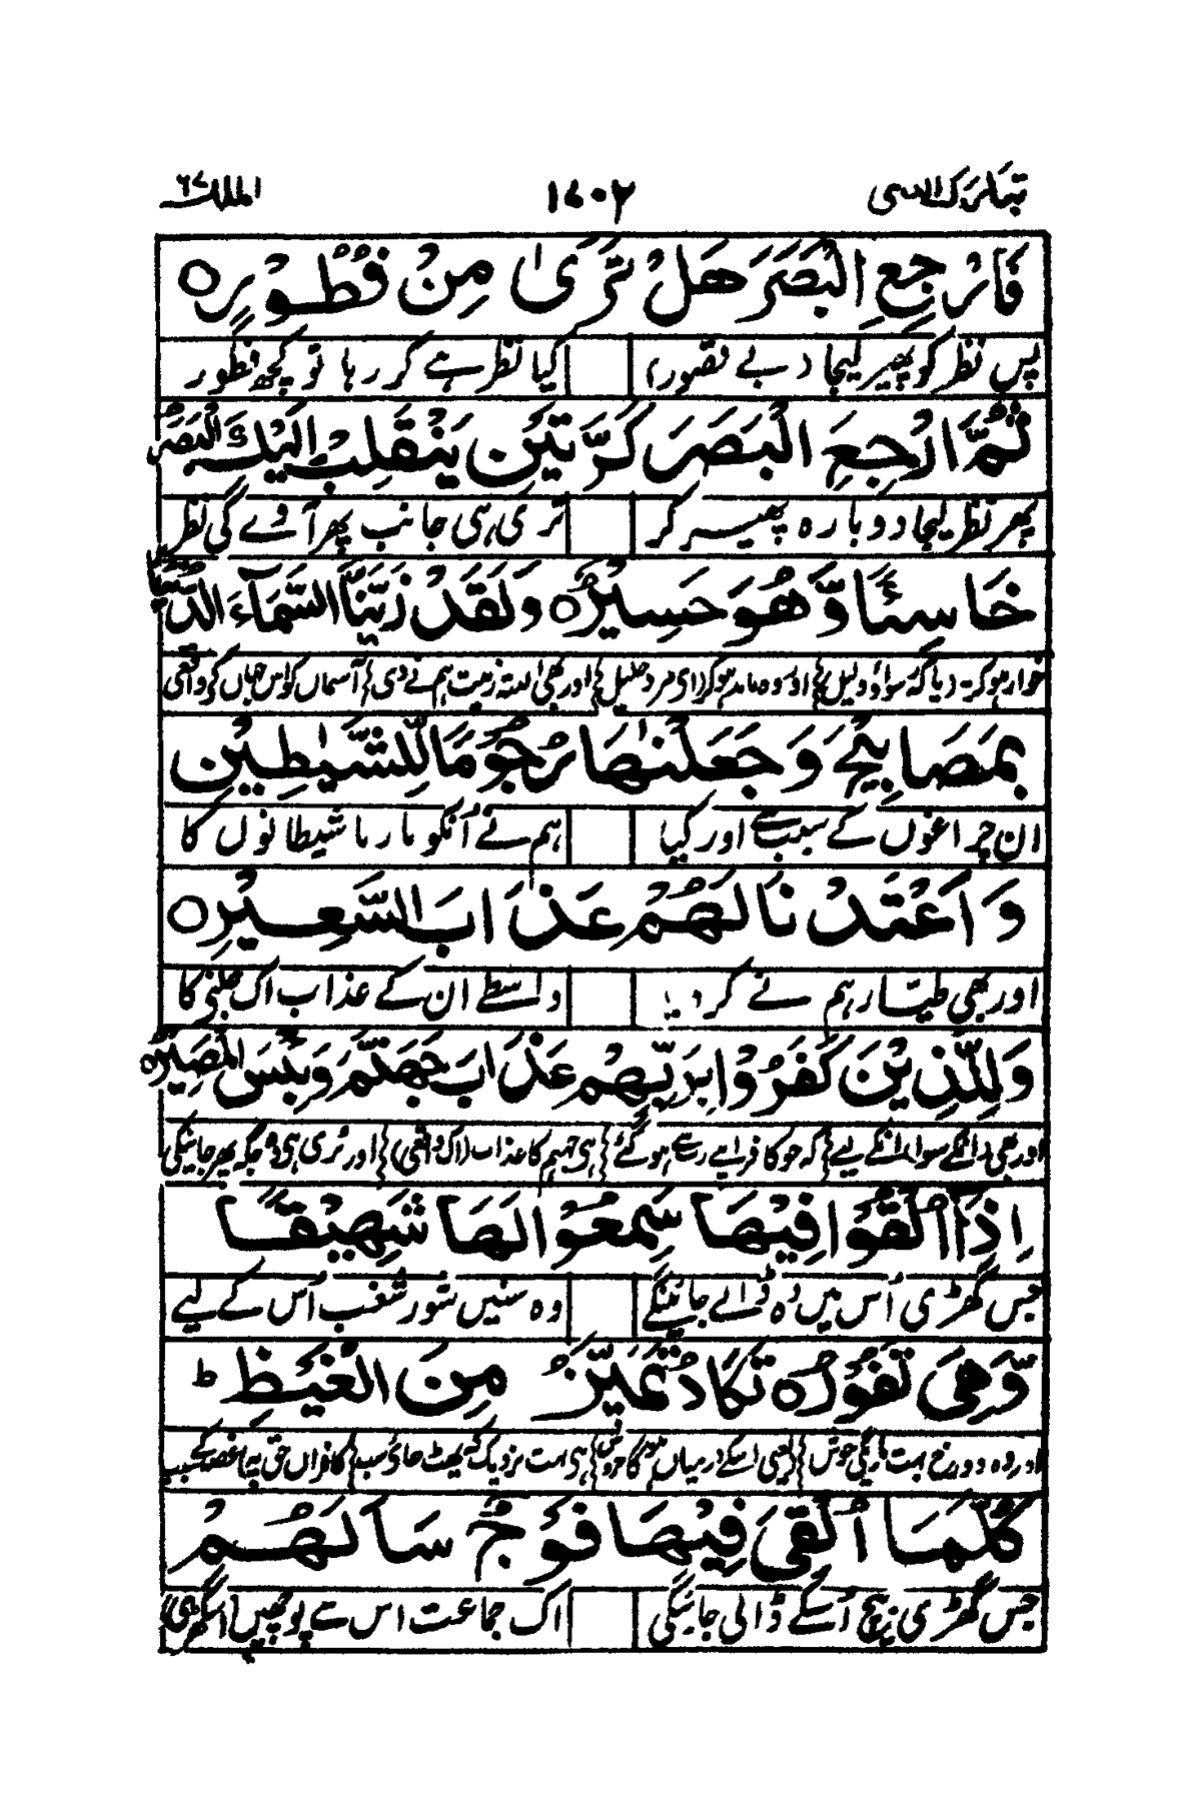 تبارك الذی ١٧٠٢ الملك ٦٧
فَارْجِعِ الْبَصَرَ هَلْ تَرٰی مِنْ فُطُوْرٍ ○
پس نظر کو پھیر لیجا (بے قصور) کیا نظر ہے کر رہا تو کچھ فطور
ثُمَّ ارْجِعِ الْبَصَرَ كَرَّتَيْنِ يَنْقَلِبْ اِلَيْكَ الْبَصَرُ
پھر نظر لیجا دوبارہ پھیر کر تری ہی جانب پھر آوے گی نظر
خَاسِئًا وَّهُوَ حَسِيْرٌ ○ وَلَقَدْ زَيَّنَّا السَّمَآءَ الدُّنْيَا
خوار ہوکر اور وہ اور بھی البتہ زینت ہم نے دی آسماں کو اس جہاں کے واقعی
بِمَصَابِيْحَ وَجَعَلْنٰهَا رُجُوْمًا لِّلشَّيٰطِيْنِ
ان چراغوں کے سبب سے اور کیا ہم نے اُنکو مار ما شیطانوں کا
وَاَعْتَدْنَا لَهُمْ عَذَابَ السَّعِيْرِ ○
اور بھی طیّار ہم نے کر دیا واسطے ان کے عذاب اک جلنے کا
وَلِلَّذِيْنَ كَفَرُوْا بِرَبِّهِمْ عَذَابُ جَهَنَّمَ وَبِئْسَ الْمَصِيْرُ ○
اور بھی انکے سوا انکے لیے کہ جو کافر اپنے رب سے ہو گئے ہی جہنم کا عذاب (اک واقعی) اور بُری ہی وہ جگہ پھر جانیکی
اِذَا اُلْقُوْا فِيْهَا سَمِعُوْا لَهَا شَهِيْقًا
جس گھڑی اُس میں وہ ڈالے جائینگے وہ سنیں شور شغب اُس کے لیے
وَّهِیَ تَفُوْرُ ○ تَكَادُ تَمَيَّزُ مِنَ الْغَيْظِ ط
اور وہ دوزخ بہت جوش یعنی اسکے درمیاں ہی بہت نزدیک کہ پھٹ جائے کافراں حق پہ غصہ کے سبب
كُلَّمَا اُلْقِیَ فِيْهَا فَوْجٌ سَاَلَهُمْ
جس گھڑی بیچ اُسکے ڈالی جائیگی اک جماعت اس سے پوچھیں (اسگھڑی)